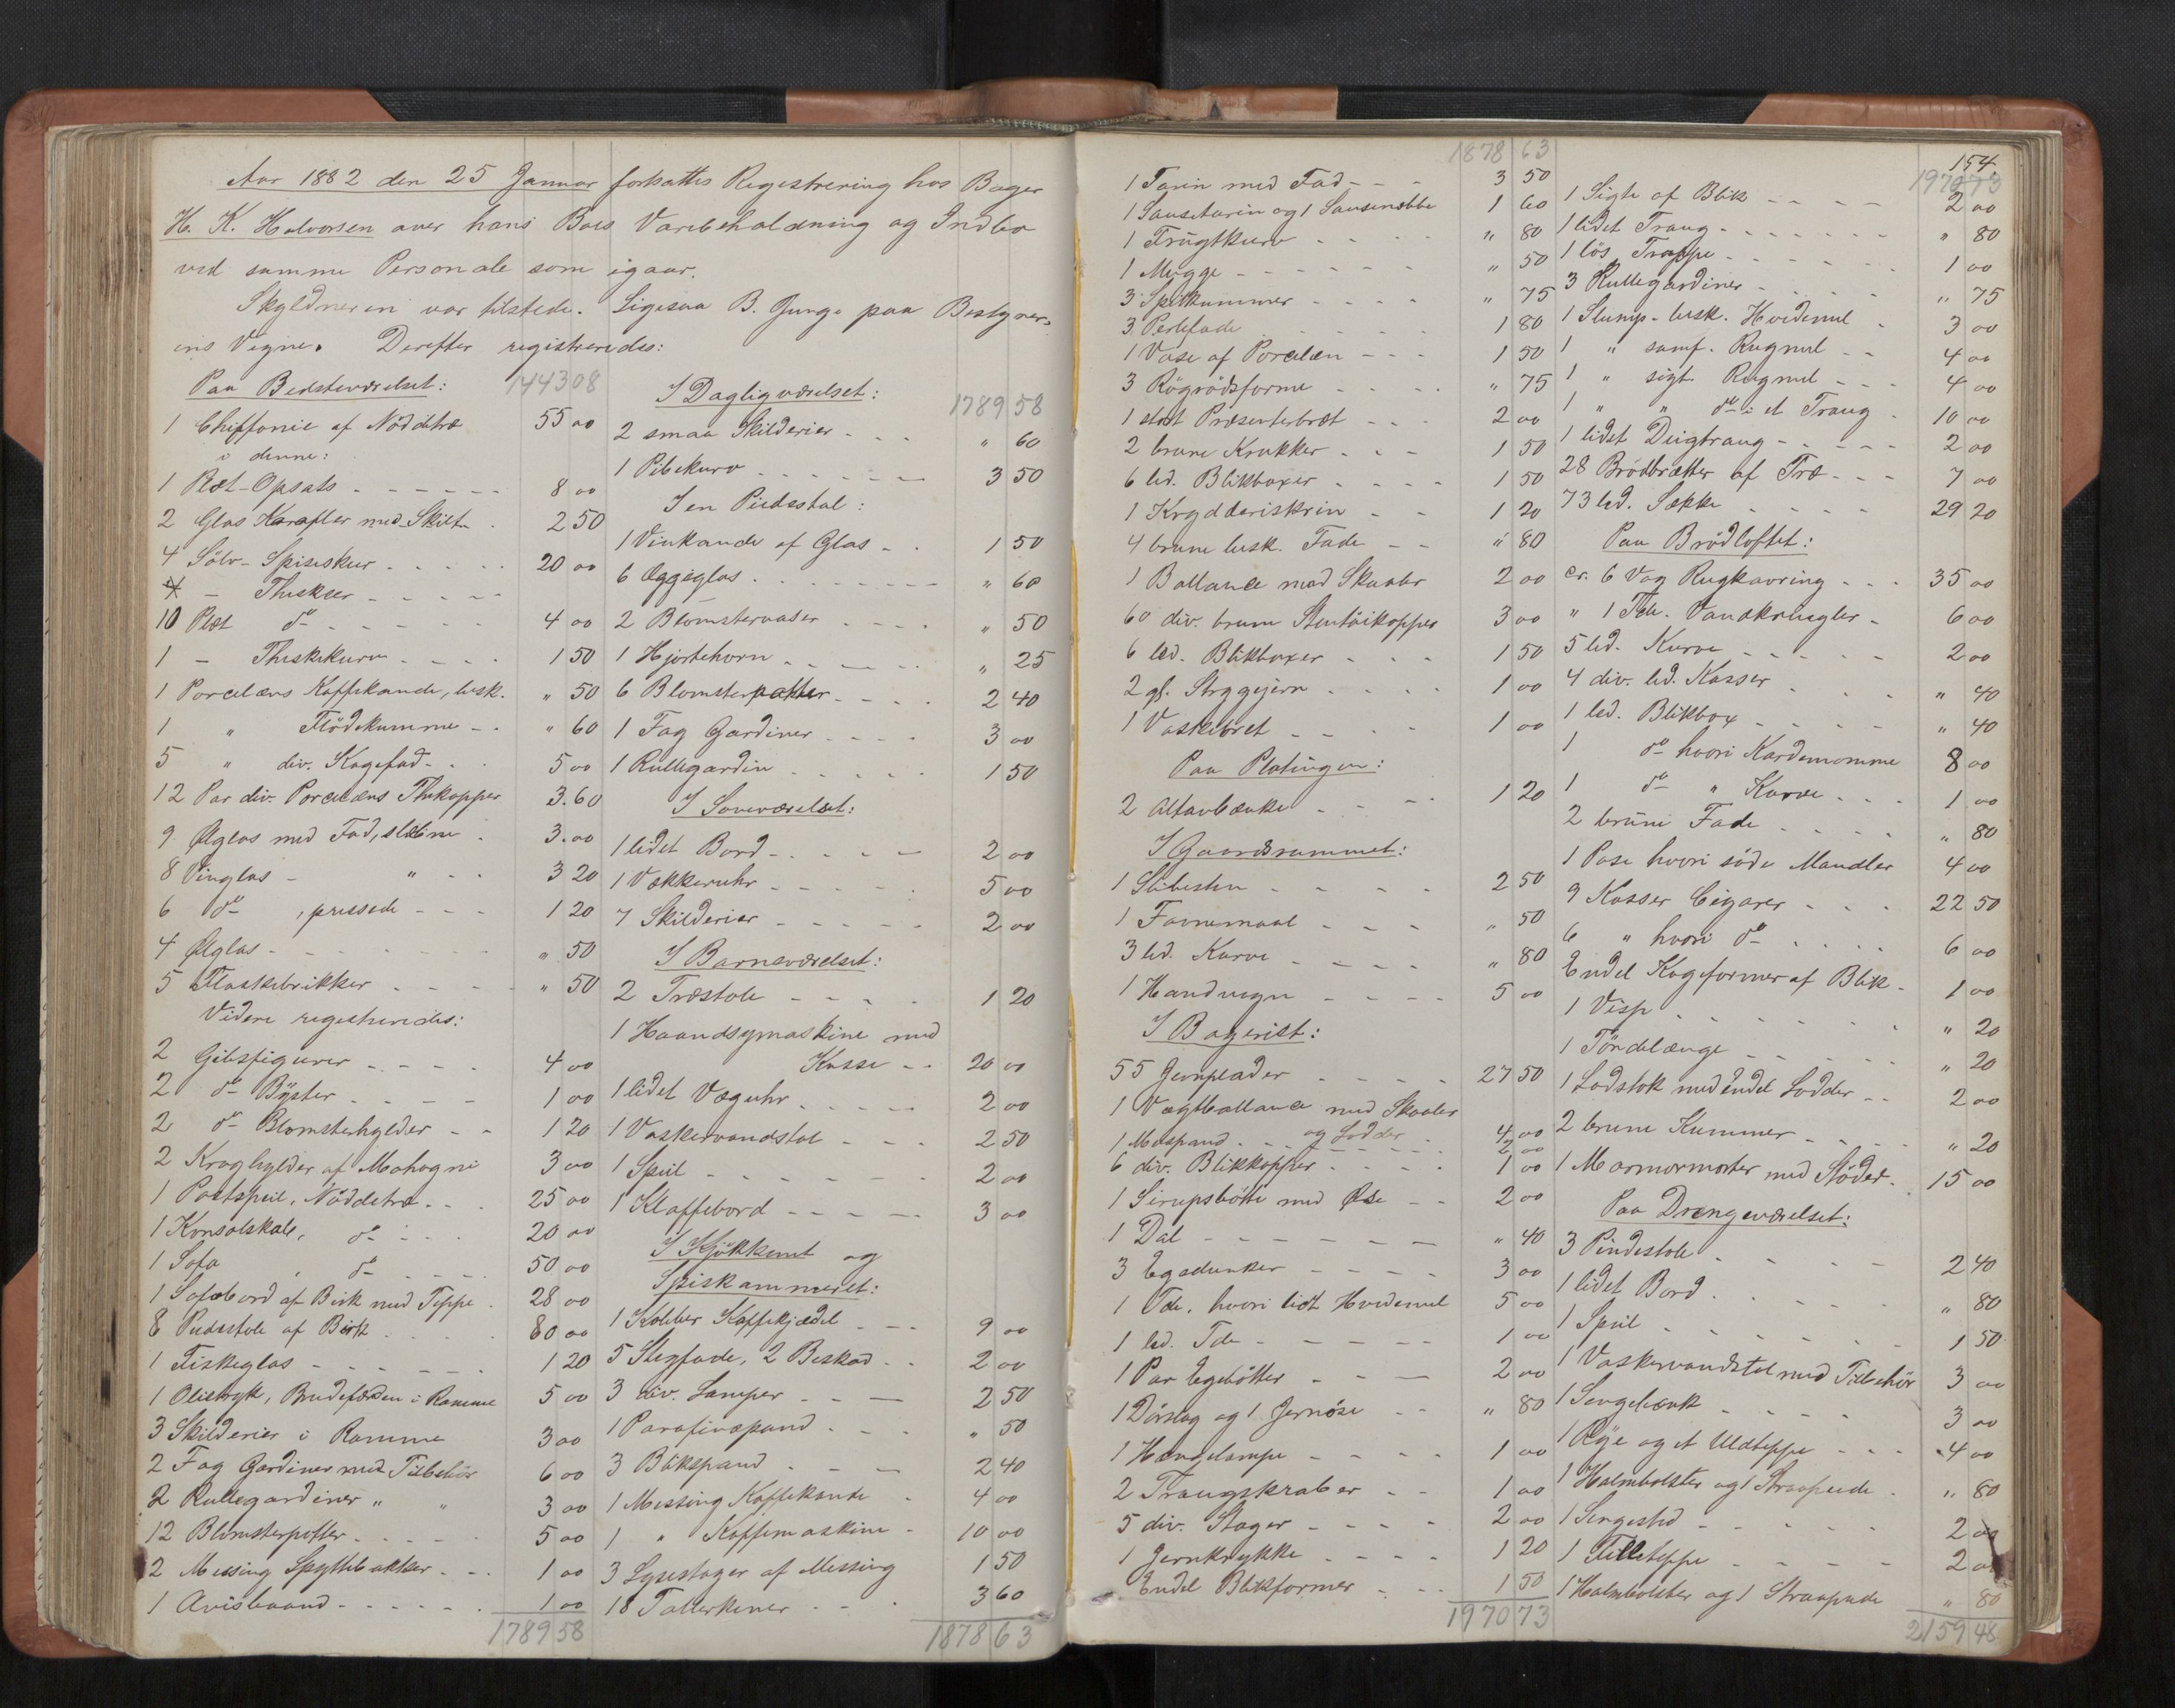 Aar 1882 den 25 Januar fortsattes Registrering hos Bager
H. K. Halvorsen over hans Boes Varebeholdning og Indbo
ved samme Personale som igaar.
Skyldneren var tilstede. Ligesaa B. Junge paa Bestyrer-
ens Vegne. Derefter registreredes:
Paa Bedsteværelset: 1443 08
1 Chiffonie af Nöddetræ 55 00
i denne:
1 Plet-Opsats 8 00
2 Glas Karafler med Skilt 2 50
4 Sölv-Spiseskeer 20 00
4 - Theskeer
10 Plet do 4 00
1 - Theskekurv 1 50
1 Porcelæns Kaffekande, besk. " 50
1 " Flödekumme " 60
5 " div. Kagefad 5 00
12 Par div. Porcelæns Thekopper 3.60
9 Ølglas med Fad, slebne 3.00
8 Vinglas - " 3 20
6 do , pressede 1 20
4 Ølglas " 50
5 Flaskebrikker " 50
Videre registreredes:
2 Gibsfigurer 4 00
2 do Byster 1 00
2 do Blomsterhylder 1 20
2 Kroghylder af Mahogni 3 00
1 Postspeil, Nöddetræ 25 00
1 Konsolskab, do 20 00
1 Sofa , do 50 00
1 Sofabord af Birk med Teppe 28 00
8 Pudestole af Birk 80 00
1 Fiskeglas 1 20
1 Olietryk, Brudefærden i Ramme 5 00
3 Skilderier i Ramme 3 00
2 Fag Gardiner med Tilbehör 6 00
2 Rullegardiner " " 3 00
12 Blomsterpotter 5 00
2 Messing Spyttebakker 1 00
1 Avisbaand 1 00
1789 58
I Dagligværelset: 1789 58
2 smaa Skilderier " 60
1 Pibekurv 3 50
I en Piedestal:
1 Vinkande af Glas 1 50
6 Æggeglas " 60
2 Blomstervaser " 50
1 Hjortehorn " 25
6 Blomsterpotter 2 40
1 Fag Gardiner 3 00
1 Rullegardin 1 50
I Soveværelset:
1 lidet Bord 2 00
1 Vækkeruhr 5 00
7 Skilderier 2 00
I Barneværelset:
2 Træstole 1 20
1 Haandsymaskine med
Kasse 20 00
1 lidet Væguhr 2 00
1 Vaskevandstol 2 50
1 Speil 2 00
1 Klaffebord 3 00
I Kjökkenet og
Spiskammeret:
1 Kobber Kaffekjædel 9 00
5 Stegfade, 2 Beskad. 2 00
3 div. Lamper 2 50
1 Parafinspand " 50
3 Blikspand 2 40
1 Messing Kaffekande 4 00
1 " Kaffemaskine 10 00
3 Lysestager af Messing 1 50
18 Tallerkener 3 60
1878 63
1878 63
1 Tarin med Fad 3 50
1 Sausetarin og 1 Sausenæbbe 1 60
1 Frugtkurv " 80
1 Mugge " 50
3 Spilkummer " 75
3 Perlefade 1 80
1 Vase af Porcelæn 1 50
3 Rögrödsforme " 75
1 stort Præsenterbræt 2 00
2 brune Krukker 1 50
6 led. Blikboxer 1 50
1 Krydderiskrin 1 20
4 brune besk. Fade " 80
1 Ballance med Skaaler 2 00
60 div. brune Stentöikopper 3 00
6 led. Blikboxer 1 50
2 gl. Strygejern 1 00
1 Vaskebret 1 00
Paa Platingen:
2 Altanbænke 1 20
I Gaardsrummet:
1 Slibesten 2 50
1 Favnemaal " 50
3 led. Kurve " 80
1 Handvogn 5 00
I Bageriet:
55 Jernplader 27 50
1 Vægtballance med Skaaler
og Lodder 4 00
1 Messpand 2 00
6 div. Blikkopper 1 00
1 Sirupsbötte med Øse 2 00
1 Dal " 40
3 Egedunker 3 00
1 Tde. hvori lidt Hvedemel 5 00
1 led. Tde 1 00
1 Par Egebötter 2 00
1 Dörslag og 1 Jernöse " 80
1 Hængelampe 1 00
2 Traugskraber 1 00
5 div. Stager 2 00
1 Jernkrykke 1 20
Endel Blikformer 1 50
1970 73
154.
1970 73
1 Sigte af Blik 2 00
1 lidet Traug " 80
1 lös Trappe 1 00
3 Rullegardiner " 75
1 Slump besk. Hvedemel 3 00
1 " samf. Rugmel 4 00
1 " sigt. Rugmel 4 00
1 " " do i et Traug 10 00
1 lidet Deigtraug 2 00
28 Brödbrætter af Træ 7 00
73 led. Sække 29 20
Paa Brödloftet:
cr. 6 Vog Rugkavring 35 00
" 1 Tde. Vandkringler 6 00
5 led. Kurve 2 00
4 div. led. Kasser " 40
1 led. Blikbox " 40
1 do hvori Kardemomme 8 00
1 do " Karve 1 00
2 brune Fade " 80
1 Pose hvori söde Mandler 4 00
9 Kasser Cigarer 22 50
6 " hvori do 6 00
Endel Kageformer af Blik 1 00
1 Visp " 20
1 Töndelænge " 20
1 Lodstok med endel Lodder 2 00
2 brune Kummer " 20
1 Marmormorter med Stöder 15 00
Paa Drengeværelset:
3 Pindestole 2 40
1 lidet Bord " 80
1 Speil 1 50
1 Vaskevandstol med Tilbehör 3 00
1 Sengebænk 3 00
1 Rye og et Uldteppe 4 00
1 Halmbolster og 1 Straapude " 80
1 Sengested 2 00
1 Filleteppe 2 00
1 Halmbolster og 1 Straapude " 80
2159 48